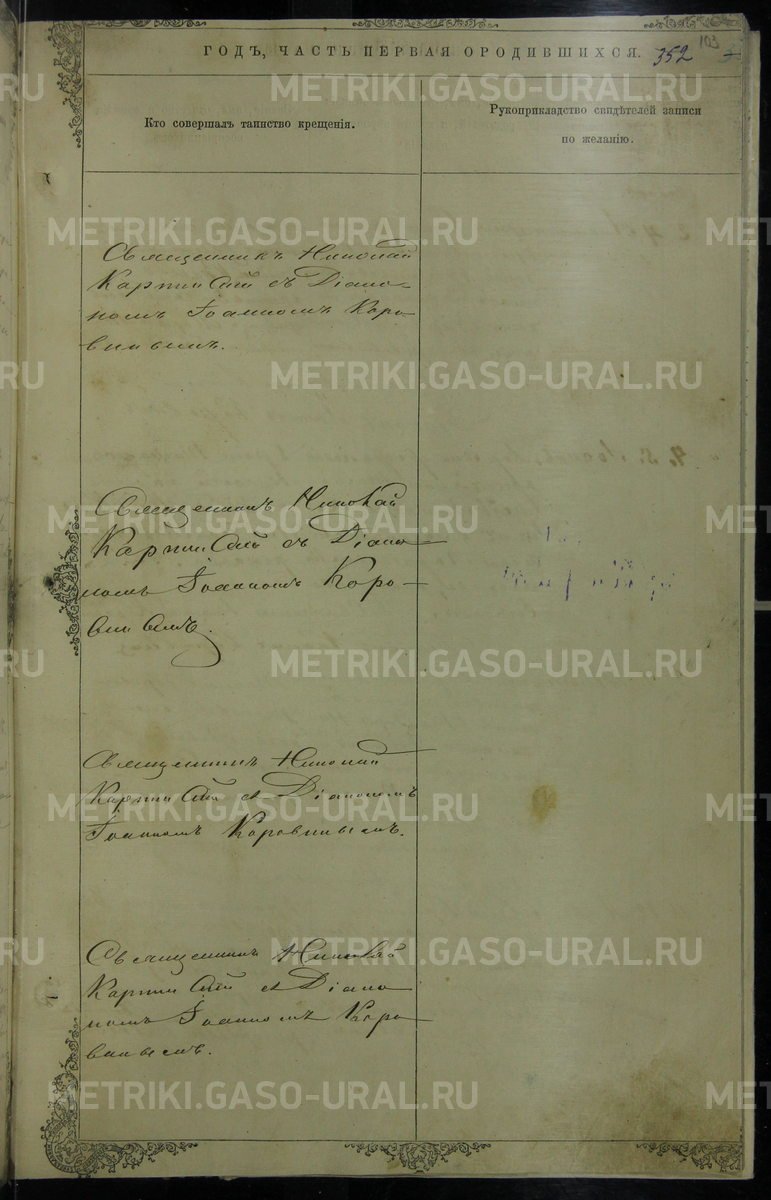 ГОДЪ, ЧАСТЬ ПЕРВАЯ О РОДИВШИХСЯ.
352
103
Кто совершалъ таинство крещенія.
Рукоприкладство свидѣтелей записи
по желанію.
METRIKI.GASO-URAL.RU
Священникъ Николай
Карпинскій съ Діако-
номъ Іоанномъ Коро-
винымъ.
Священникъ Николай
Карпинскій съ Діако-
номъ Іоанномъ Коро-
винымъ.
Священникъ Николай
Карпинскій съ Діакономъ
Іоанномъ Коровинымъ.
Священникъ Николай
Карпинскій съ Діако
номъ Іоанномъ Коро
винымъ.